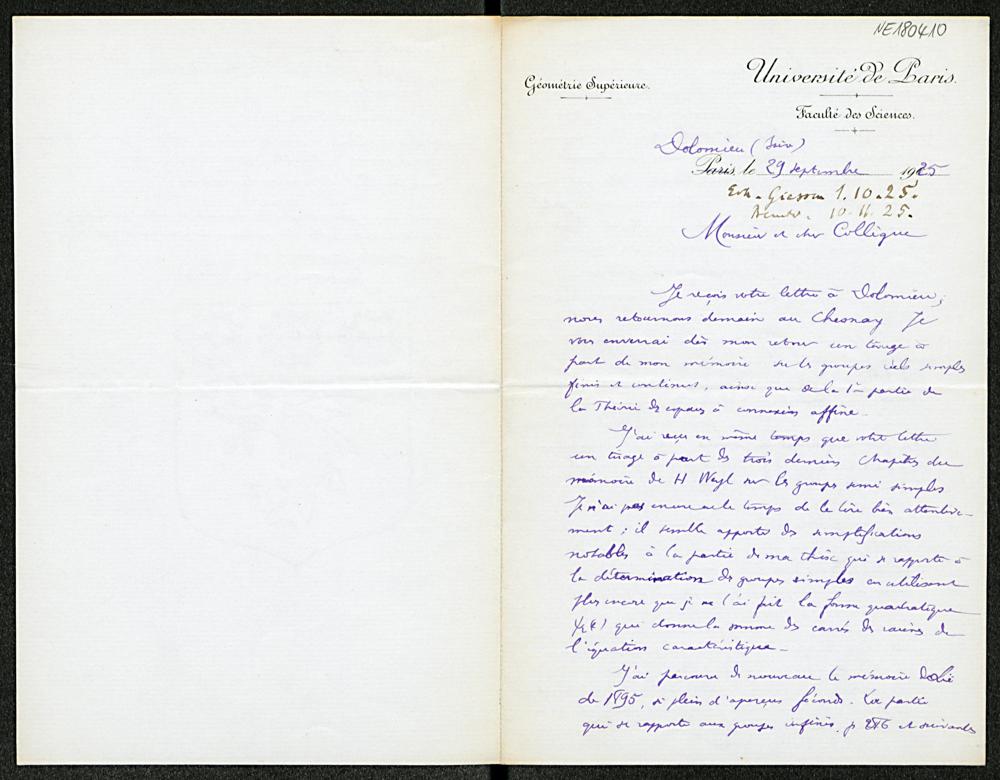 NE180410
Géométrie Supérieure.
Université de Paris.
Faculté des Sciences.
Dolomieu (Isère)
Paris, le 29 septembre 1925
1.10.25.
10.11.25.
Monsieur et cher Collègue
Je reçois votre lettre à Dolomieu;
nous retournons demain au Chesnay Je
vous enverrai dès mon retour un tirage à
part de mon mémoire sur les groupes réels simples
finis et continus, ainsi que de la 1re partie de
la Théorie des espaces à connexion affine.
J'ai reçu en même temps que votre lettre
un tirage à part des trois derniers chapitres du
mémoire de H Weyl sur les groupes semi simples
Je n'ai pas encore eu le temps de le lire bien attentive-
ment; il semble apporter des simplifications
notables à la partie de ma thèse qui se rapporte à
la détermination des groupes simples en utilisant
plus encore que je ne l'ai fait la forme quadratique
qui donne la somme des carrés des racines de
l'équation caractéristique.
J'ai parcouru de nouveau le mémoire de Lie
de 1895, si plein d'aperçus féconds. La partie
qui se rapporte aux groupes infinis, p 286 et suivantes